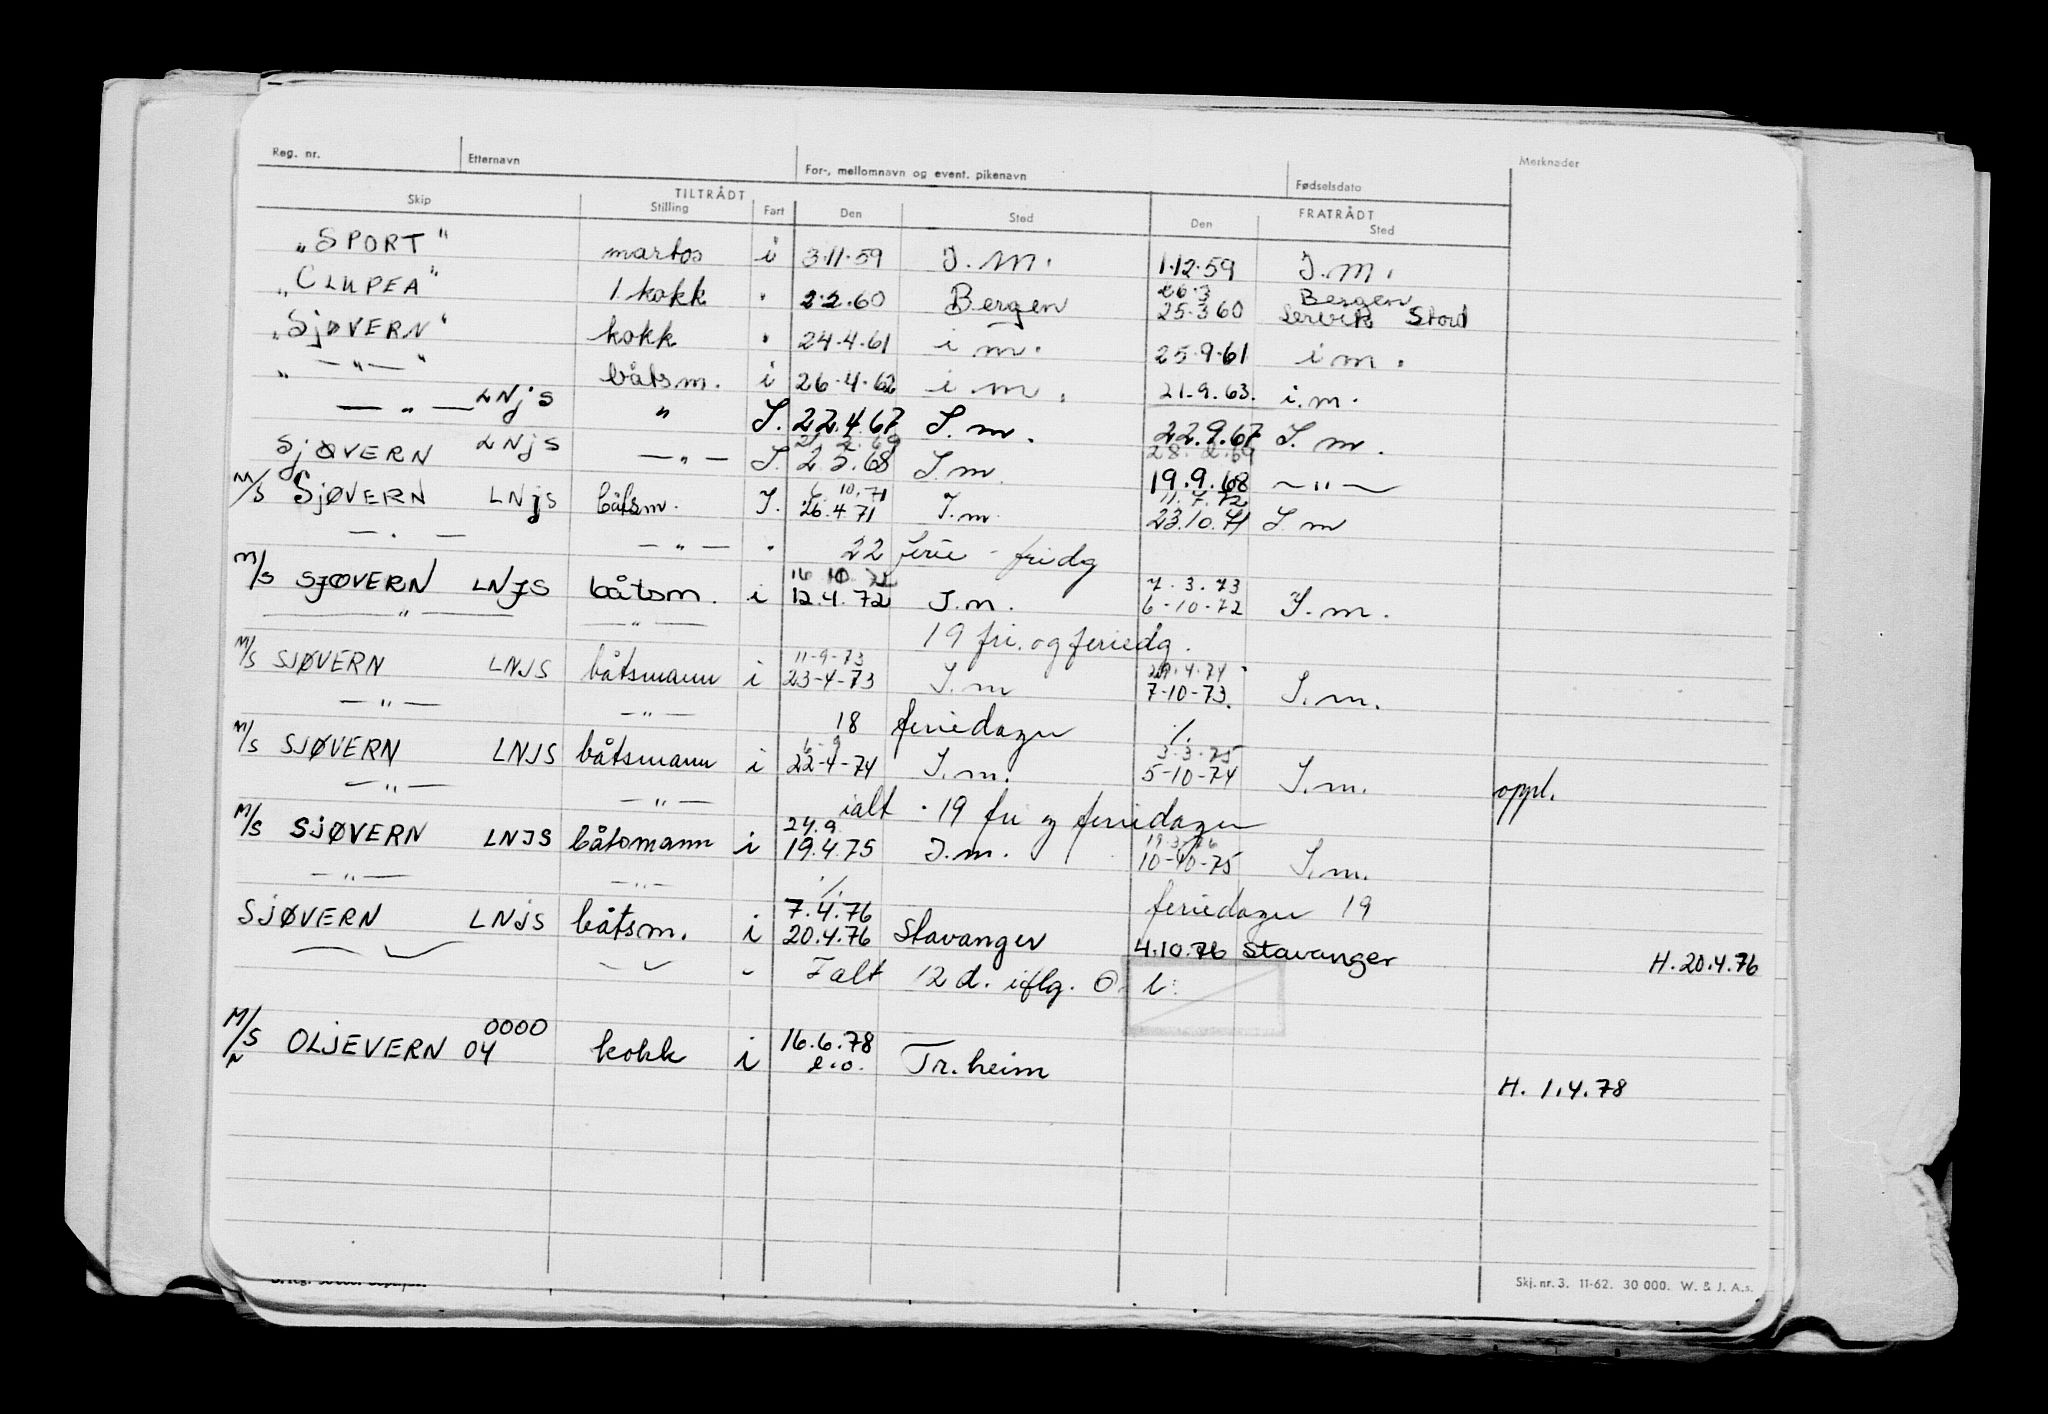 Reg. nr. Etternavn For-, mellomnavn og event. pikenavn Fødselsdato Merknader
TILTRÅDT FRATRÅDT
Skip Stilling Fart Den Sted Den Sted
„SPORT" martos i 3.11.59 I.M. 1.12.59 I.M.
26.3 Bergen
„CLUPEA" 1 kokk " 2.2.60 Bergen 25.3 60 Lervik Stord
„SjØVERN" kokk " 24-4-61 i m. 25.9.61 i m.
„ — " — " båtsm. i 26-4-62 i m. 21-9.63. i.m.
— " — LNjS " I. 22.4.67 I.m. 22.9.67 I.m.
21.2.69 28.2.69
SjØVERN LNjS — " — I. 2 5.68 I.m. 19.9.68 — " —
10.71 11.7.72
M/S SjØVERN LNjS båtsm. I. 26.4.71 I.m. 23.10.71 I.m
— " — — " — " 22 ferie - fridg
16 10 72 7.3.73
M/S SJØVERN LNJS båtsm. i 12.4.72 I.m. 6-10-72 I.m.
— " — — " — 19 fri. og feriedg.
11-9-73 29.4.74
M/S SJØVERN LNJS båtsmann i 23-4-73 I.m 7-10-73. I.m.
— " — — " — 18 feriedager ./.
6-9 3.3.75
M/S SJØVERN LNJS båtsmann i 22-4-74 I.m. 5-10-74 I.m. oppl.
— " — — " — ialt - 19 fri og feriedager
24.9 19.3.76
M/S SJØVERN LNJS båtsmann i 19.4.75 I.m. 10-10-75 I.m.
— " — — " — ./. feriedager 19
7.4.76
SJØVERN LNJS båtsm. i 20.4.76 Stavanger 4.10.76 Stavanger H. 20.4.76
Ialt 12 d. iflg.
M/S OLJEVERN 0000
04 kokk i 16.6.78 Tr.heim
e.o.
H. 1.4.78
Skj. nr. 3. 11-62. 30 000. W. & J. A.s.